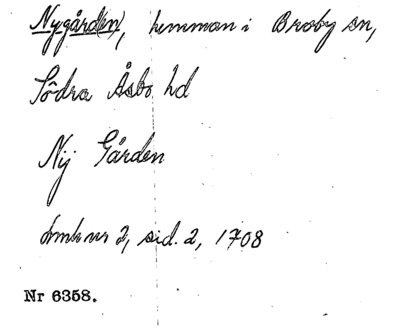 Nygård(en), hemman i Broby sn,
Södra Åsbo hd
Nij Gården
nr 2, sid. 2, 1708
Nr 6358.